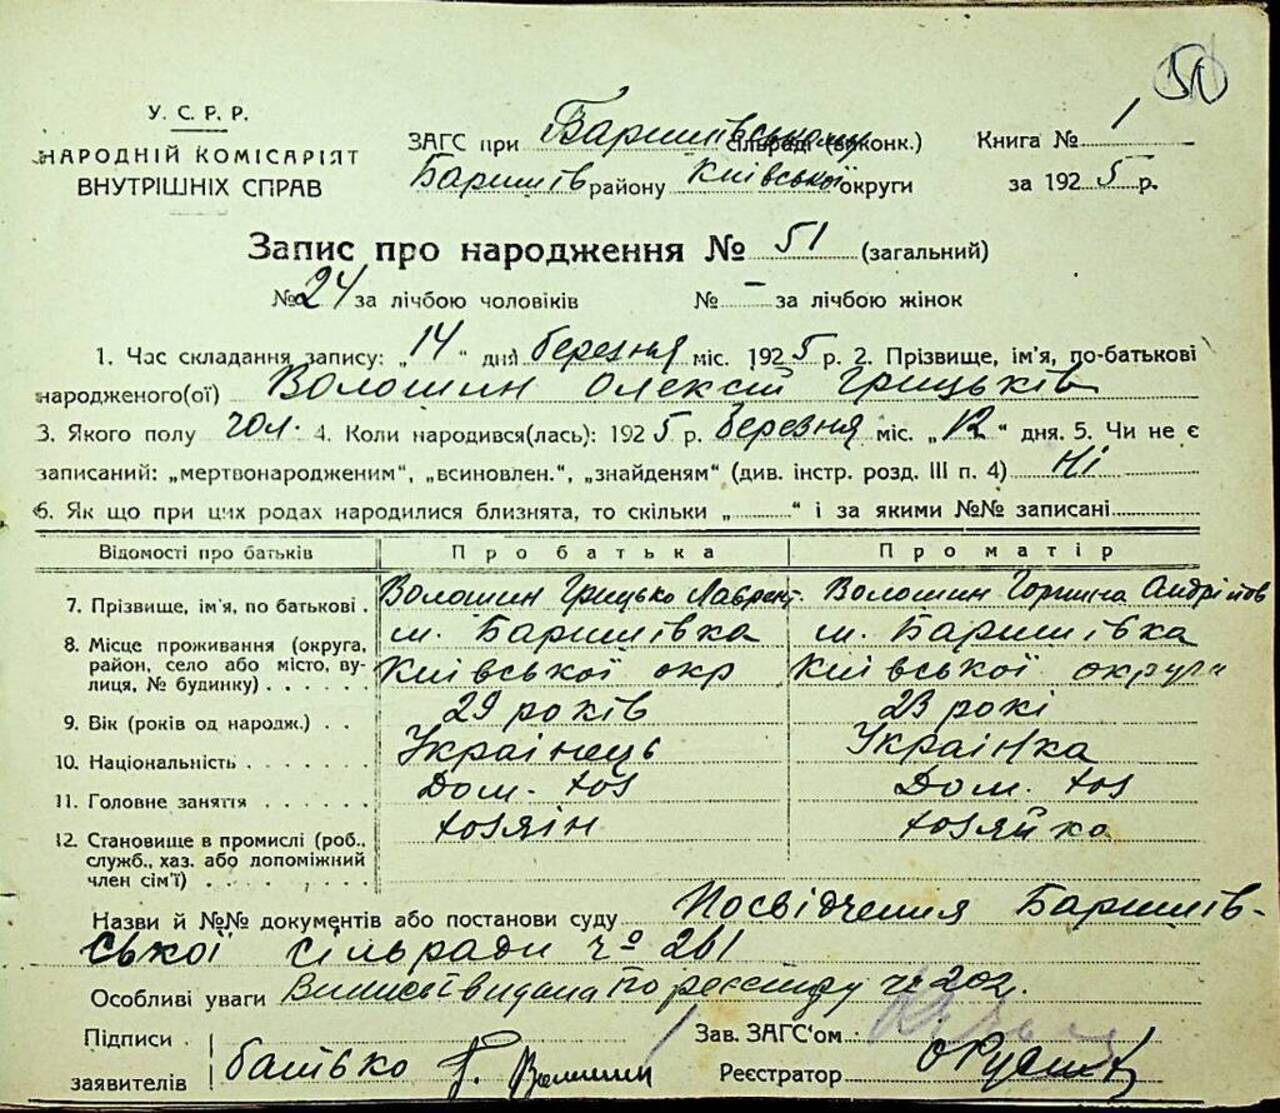 50
У. С. Р. Р.
НАРОДНІЙ КОМІСАРІЯТ
ВНУТРІШНІХ СПРАВ
ЗАГС при Баришівському сільраді (викон.)
Книга № 1
Баришів району Київської округи
за 1925 р.
Запис про народження № 51 (загальний)
№ 24 за лічбою чоловіків № – за лічбою жінок
1. Час складання запису: „14“ дня березня міс. 1925 р. 2. Прізвище, ім'я, по-батькові
народженого(ої) Волошин Олексій Грицьків
3. Якого полу чол. 4. Коли народився(лась): 1925 р. березня міс. „12“ дня. 5. Чи не є
записаний: „мертвонародженим“, „всиновлен.“, „знайденям“ (див. інстр. розд. III п. 4) Ні
6. Як що при цих родах народилися близнята, то скільки „ “ і за якими №№ записані
Відомості про батьків Про батька Про матір
7. Прізвище, ім'я, по батькові . Волошин Грицько Лаврент. Волошин Горпина Андріїов
8. Місце проживання (округа, м. Баришівка м. Баришівка
район, село або місто, ву- Київської окр Київської округи
лиця, № будинку) . . . . . .
9. Вік (років од народж.) . . 29 років 23 рокі
10. Національність . . . . . . . Українець Українка
11. Головне заняття . . . . . . Дом. хоз Дом. хоз
12. Становище в промислі (роб., хозяін хозяйка
служб., хаз. або допоміжний
член сім'ї) . . . . . . . .
Назви й №№ документів або постанови суду Посвідчення Баришів-
ської сільради ч° 261
Особливі уваги Виписъ видана по реєстру ч. 202.
Підписи Зав. ЗАГС'ом
заявителів батько Г. Волошин Реєстратор